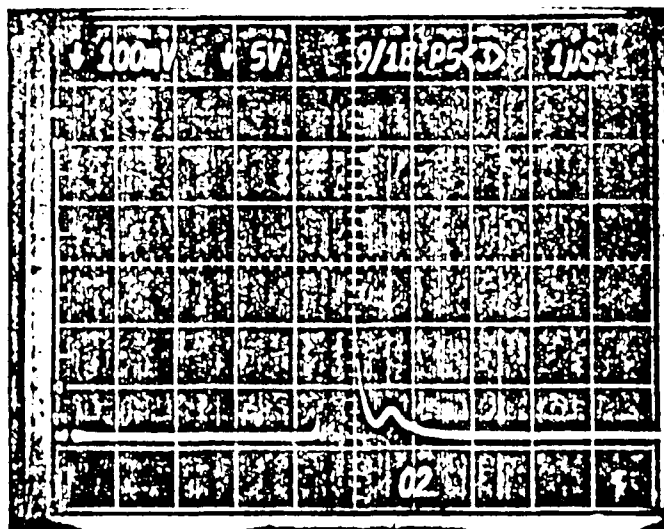 ↓ 100mV ↓ 5V 9/18 P5<3> 1µS
02